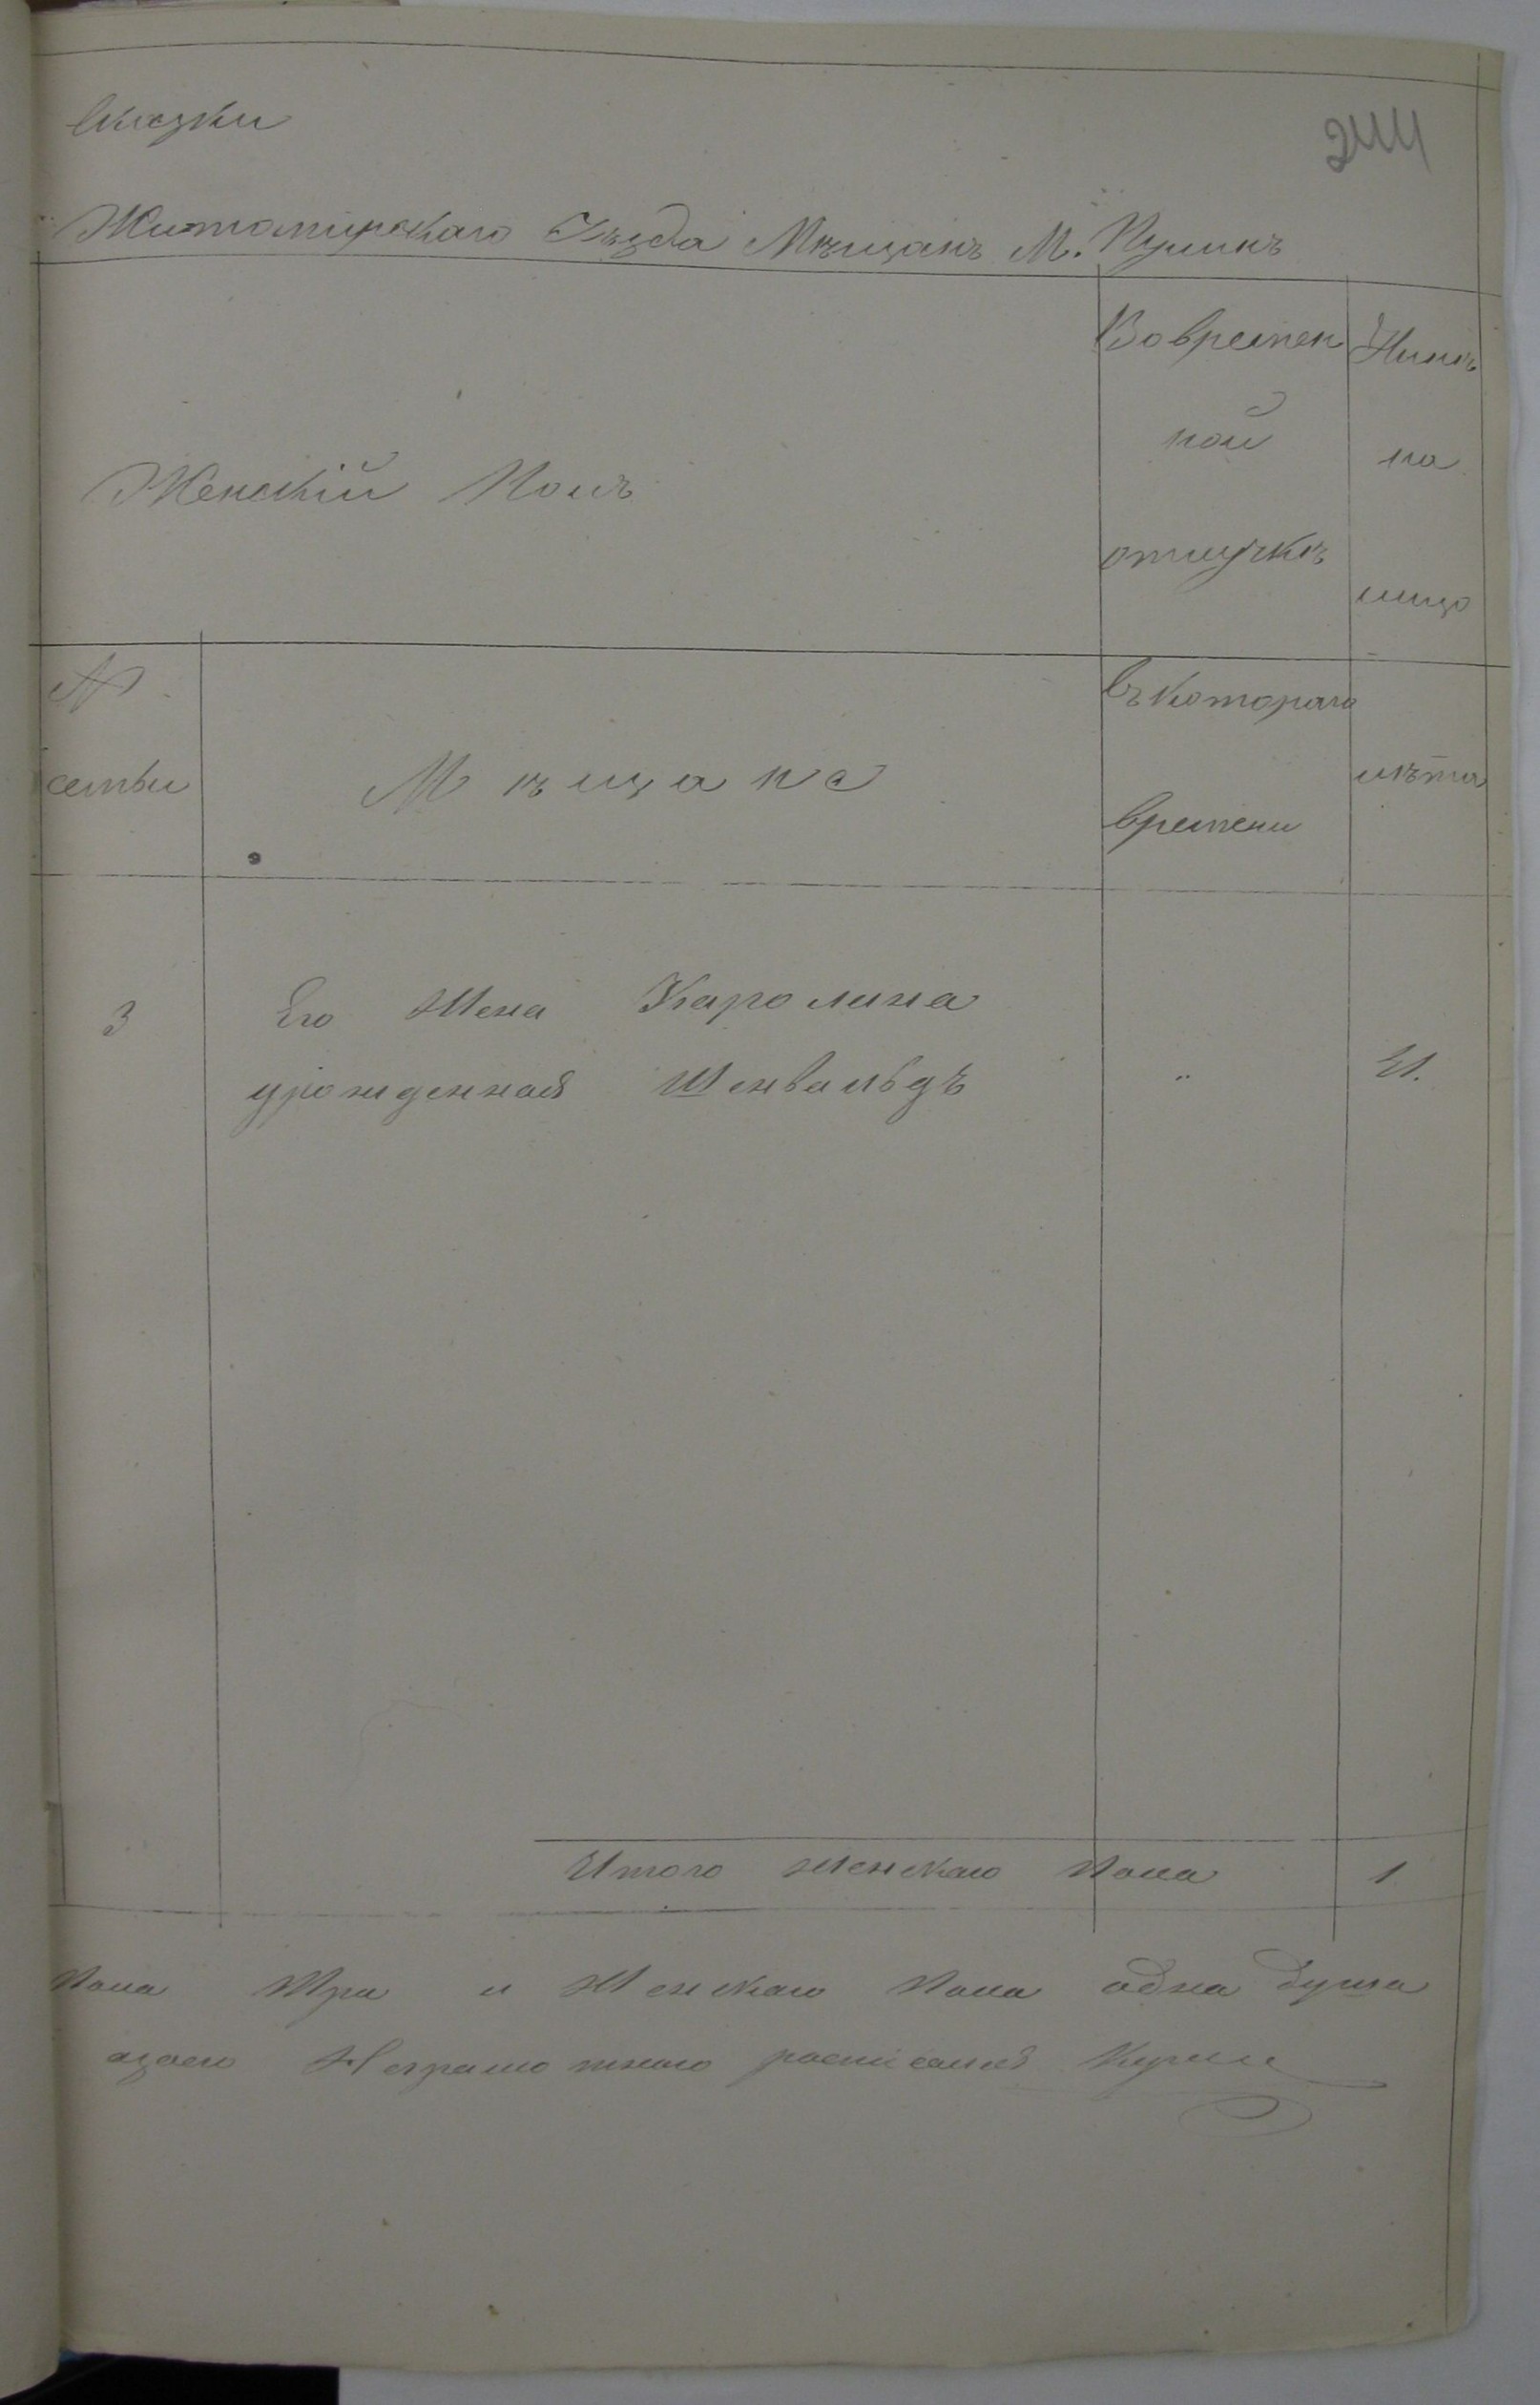 сказки
244
Житомирскаго Уѣзда Мѣщанъ М. Пулинъ
Женскій Полъ
Во времен
ной
отлучкѣ
Нынѣ
на
лицо
№
семьи
Мѣщане
въ котораго
времени
лѣта
3
Его Жена Каролина
урожденная Шенвальдъ
"
Итого женскаго Пола 1
Пола Три и Женскаго Пола одна душа
Неграмотнаго росписался